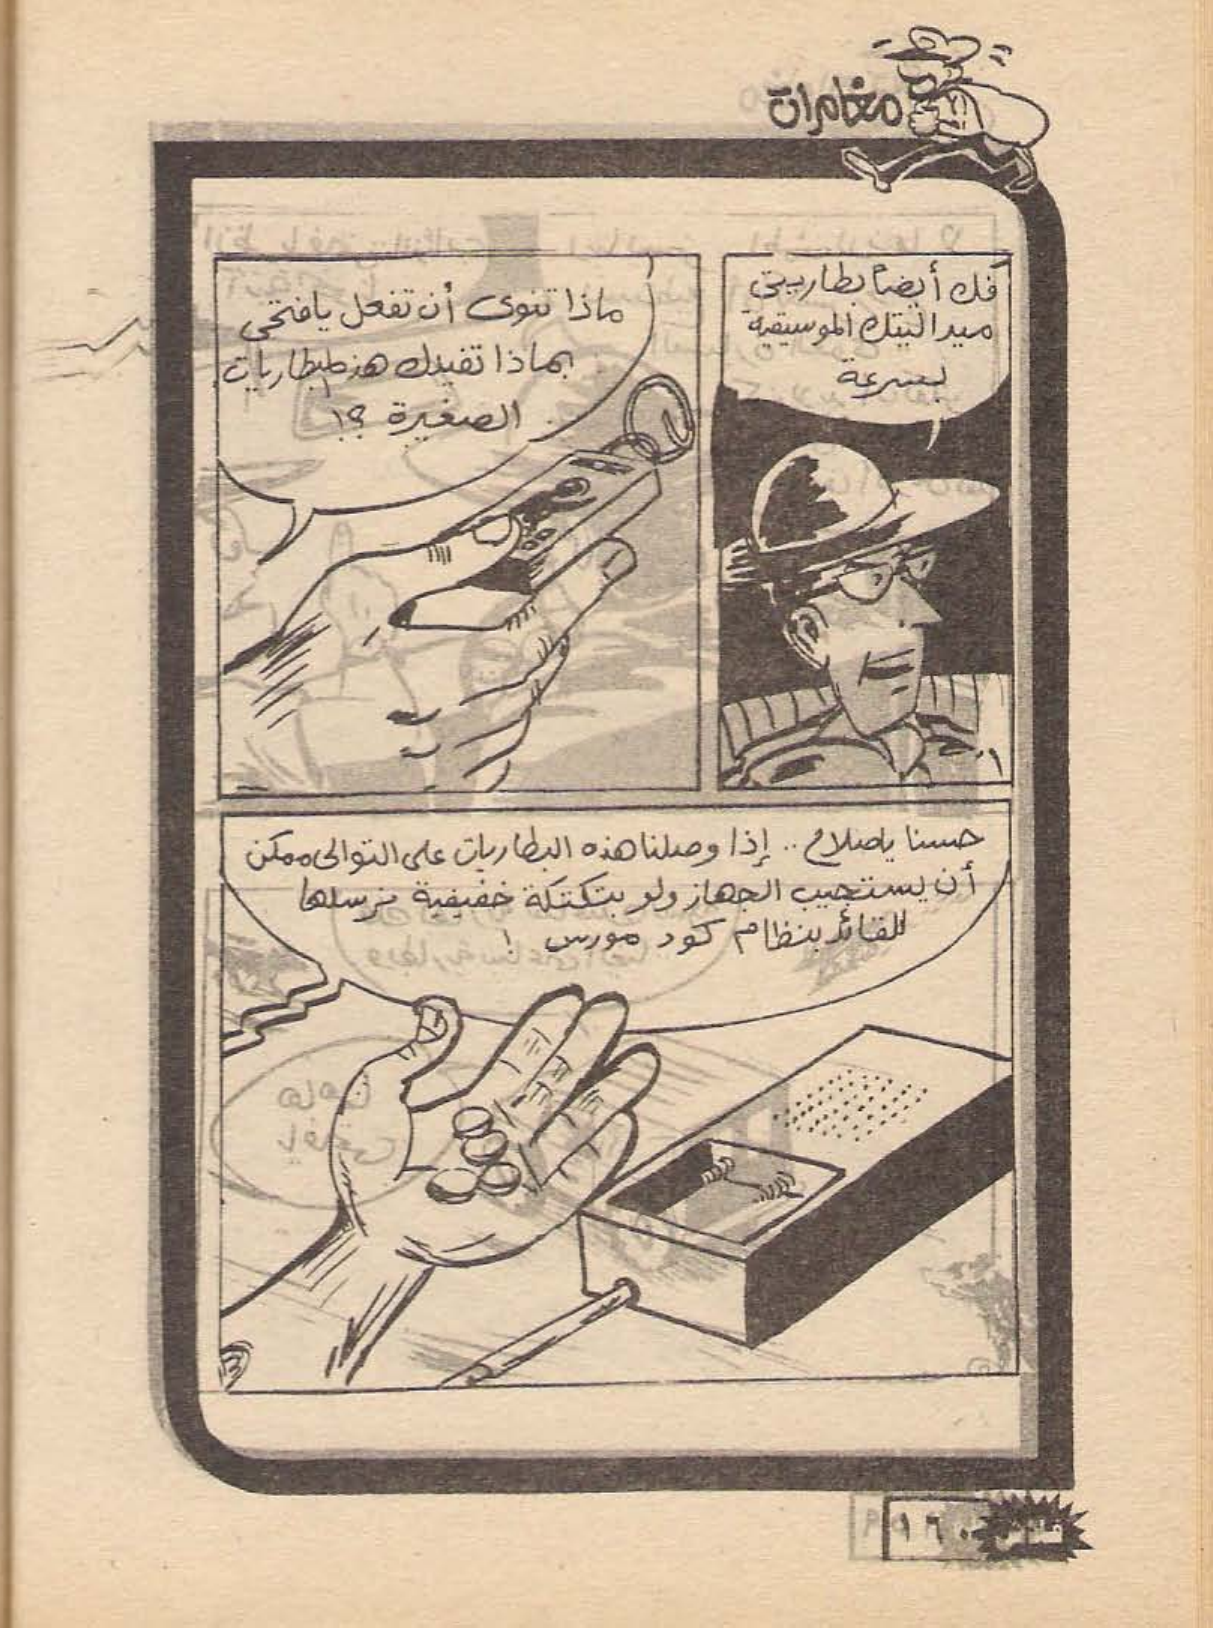 مغامرات
فك أيضاً بطاريتي
ميداليتك الموسيقية
بسرعة
ماذا تنوى أن تفعل يا فتحى
بماذا تفيدك هذه البطاريات
الصغيرة ؟!
حسنا يا صلاح .. إذا وصلنا هذه البطاريات على التوالى ممكن
أن يستجيب الجهاز ولو بتكتكة خفيفية نرسلها
للقائد بنظام كود مورس !
فلاش ١٦٠